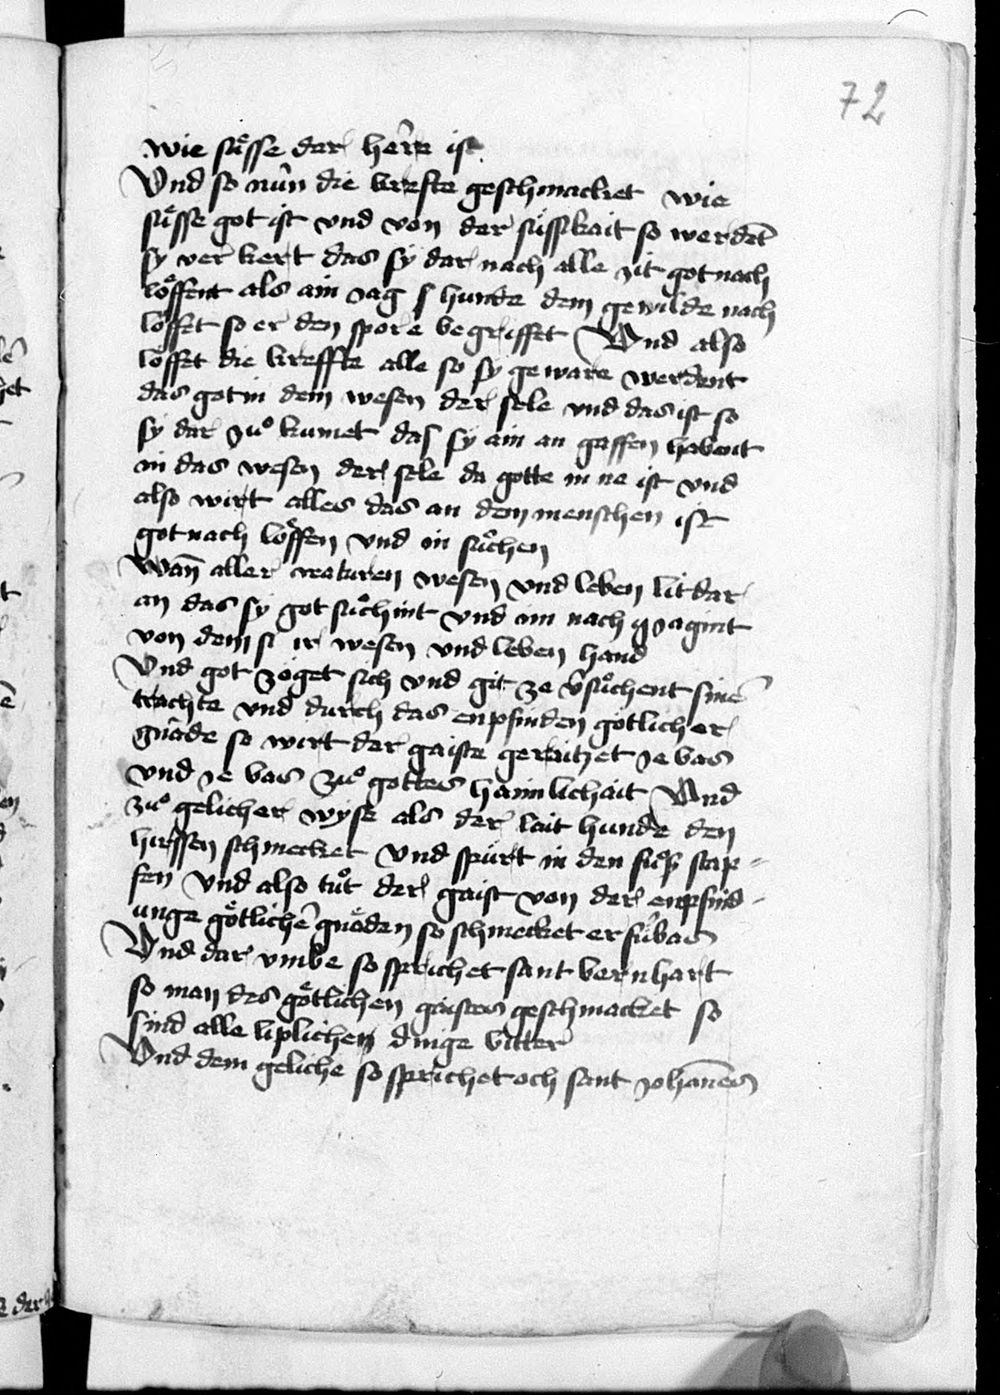 72
wie süsse der herre ist
Vnd so nûn die krefte geschmacket wie
süsse got ist vnd von der süsskait so werdēt
sy ver kert das sy dar nach alle zit got nach
löffent als ain jag hunde dem gewilde nach
löffet so er den spore begriffet Vnd also
löffet die kreffte alle so sy geware werdent
das got in dem wesen der sele vnd das ist so
sy dar zuͦ kumet das sy ain an gaffen habent
in das wesen der sele da gotte in ne ist vnd
also wirt alles das an dem menschen ist
got nach löffen vnd in suͦchen
Wan̄ aller creaturen wesen vnd leben lit dar
an das sy got suͦchint vnd im nach jagint
von dem si ir wesen vnd leben hand
Vnd got zöget sich vnd git ze v̂suͦchent sinē
trachte vnd durch das enpfinden götlicher
gnade so wirt der gaiste geraitzet ie bas
vnd ie bas zuͦ gottes haimlichait Vnd
zuͦ gelicher wyse als der lait hunde den
hirssen schmecket Vnd spürt in den fuͦs stap-
fen Vnd also tuͦt der gaist von der enpfind-
unge götlichē gnaden so schmecket er fürbas
Vnd dar vmbe so sprichet sant bernhart
so man des götlichen gaistes geschmacket so
sind alle liplichen dinge bitter
Vnd dem geliche so sprichet och sant Johan̄es